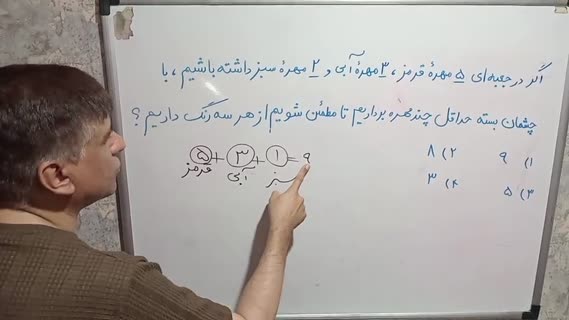 اگر در جعبه‌ای ۵ مهرهٔ قرمز، ۳ مهرهٔ آبی و ۲ مهرهٔ سبز داشته باشیم، با
چشمان بسته حداقل چند مهره برداریم تا مطمئن شویم از هر سه رنگ داریم؟
۱) ۹ ۲) ۸
۳) ۵ ۴) ۳
۵ + ۳ + ۱ = ۹
قرمز آبی سبز